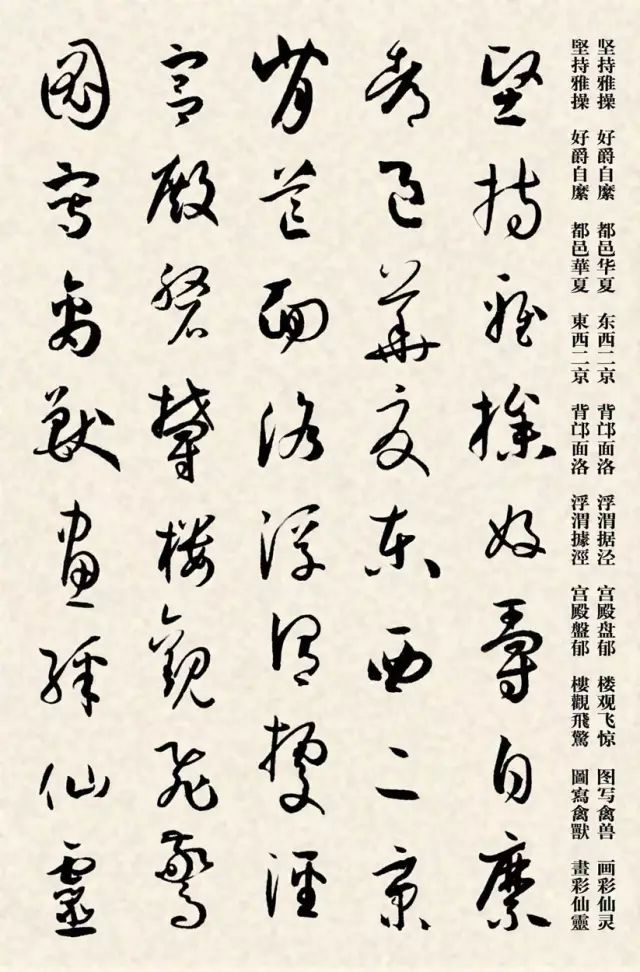 坚持雅操 好爵自縻 都邑华夏 东西二京 背邙面洛 浮渭据泾 宫殿盘郁 楼观飞惊 图写禽兽 画彩仙灵
堅持雅操 好爵自縻 都邑華夏 東西二京 背邙面洛 浮渭據涇 宮殿盤郁 樓觀飛驚 圖寫禽獸 畫彩仙靈
堅持雅操好爵自縻
都邑華夏東西二京
背芒面洛浮渭據涇
宮殿磐鬱樓觀飛驚
圖寫禽獸畫綵仙靈